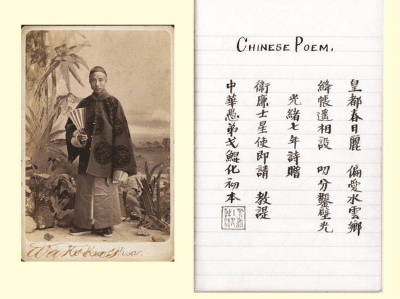 CHINESE POEM.
皇都春日麗 偏愛水雲鄉
絳帳遥相設 叨分鑿壁光
光緒七年詩贈
衛廉士星使即請 教諟
中華愚弟戈鯤化初本